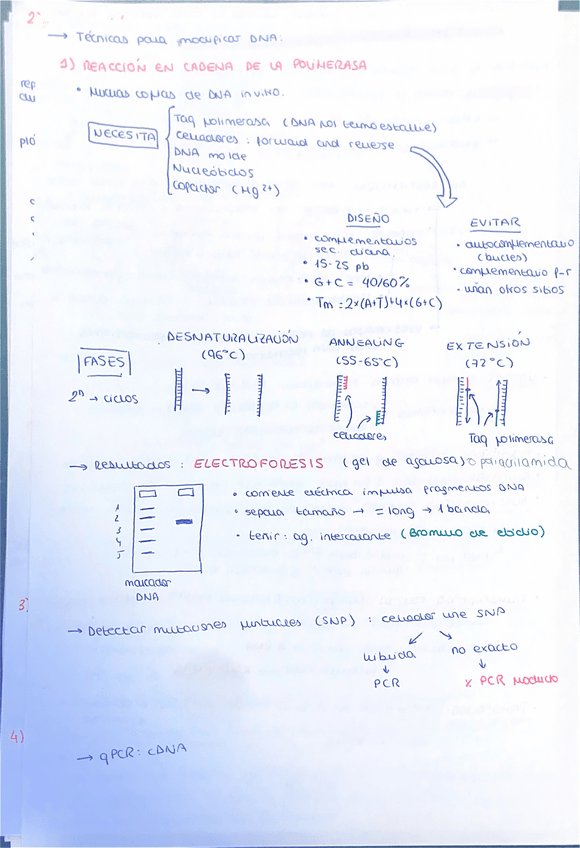 2)
→ Técnicas para modificar DNA:
1) REACCIÓN EN CADENA DE LA POLIMERASA
• Muchas copias de DNA in vitro.
NECESITA
Taq polimerasa (DNA pol termoestable)
cebadores: forward and reverse
DNA molde
Nucleótidos
Cofactor (Mg2+)
DISEÑO
• complementarios
sec. diana.
• 15-25 pb
• G+C = 40/60%
• Tm = 2×(A+T)+4×(G+C)
EVITAR
• autocomplementario
(bucles)
• complementario f-r
• unan otros sitios
FASES
2ⁿ → ciclos
DESNATURALIZACIÓN
(96°C)
ANNEALING
(55-65°C)
cebadores
EXTENSIÓN
(72°C)
Taq polimerasa
→ Resultados: ELECTROFORESIS (gel de agarosa) o paliacrilamida
1
2
3
4
5
marcador
DNA
• corriente eléctrica impulsa fragmentos DNA
• separa tamaño → = long → 1 banda
• teñir: ag. intercalante (Bromuro de etidio)
3)
→ Detectar mutaciones puntuales (SNP): cebador une SNP
hibrida
↓
PCR
no exacto
↓
x PCR producto
4)
→ qPCR: cDNA